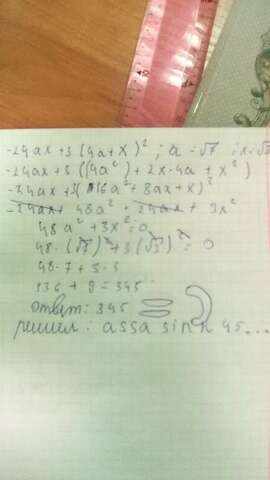 -24ax+3(4a+x)² ; a=√7 ; x=√3
-24ax+3((4a²)+2x·4a+x²)
-24ax+3(16a²+8ax+x)²
-24ax+48a²+24ax+3x²
48a²+3x²=0
48·(√7)²+3(√3)²=0
48·7+3·3
336+9=345
ответ: 345
решел: assasinn 45...